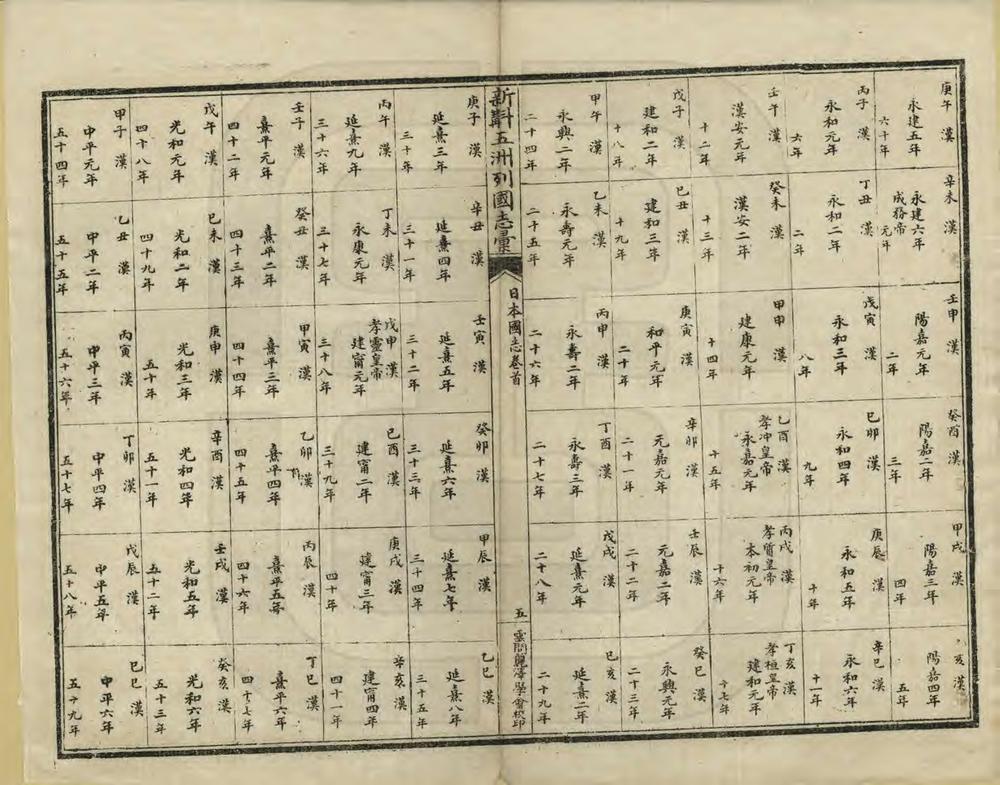 庚午 漢
永建五年
六十年
辛未 漢
永建六年
成務帝 元年
壬申 漢
陽嘉元年
二年
癸酉 漢
陽嘉二年
三年
甲戌 漢
陽嘉三年
四年
亥 漢
陽嘉四年
五年
丙子 漢
永和元年
六年
丁丑 漢
永和二年
二年
戊寅 漢
永和三年
八年
巳卯 漢
永和四年
九年
庚辰 漢
永和五年
十年
辛巳 漢
永和六年
十一年
壬午 漢
漢安元年
十二年
癸未 漢
漢安二年
十三年
甲申 漢
建康元年
十四年
乙酉 漢
孝冲皇帝
永嘉元年
十五年
丙戌 漢
孝質皇帝
本初元年
十六年
丁亥 漢
孝桓皇帝
建和元年
十七年
戊子 漢
建和二年
十八年
巳丑 漢
建和三年
十九年
庚寅 漢
和平元年
二十年
辛卯 漢
元嘉元年
二十一年
壬辰 漢
元嘉二年
二十二年
癸巳 漢
永興元年
二十三年
甲午 漢
永興二年
二十四年
乙未 漢
永壽元年
二十五年
丙申 漢
永壽二年
二十六年
丁酉 漢
永壽三年
二十七年
戊戌 漢
延熹元年
二十八年
巳亥 漢
延熹二年
二十九年
新斠五洲列國志彙
日本國志卷首
五
雲間麗澤學會校印
庚子 漢
延熹三年
三十年
辛丑 漢
延熹四年
三十一年
壬寅 漢
延熹五年
三十二年
癸卯 漢
延熹六年
三十三年
甲辰 漢
延熹七年
三十四年
乙巳 漢
延熹八年
三十五年
丙午 漢
延熹九年
三十六年
丁未 漢
永康元年
三十七年
戊申 漢
孝靈皇帝
建甯元年
三十八年
巳酉 漢
建甯二年
三十九年
庚戌 漢
建甯三年
四十年
辛亥 漢
建甯四年
四十一年
壬子 漢
熹平元年
四十二年
癸丑 漢
熹平二年
四十三年
甲寅 漢
熹平三年
四十四年
乙卯 漢
熹平四年
四十五年
丙辰 漢
熹平五年
四十六年
丁巳 漢
熹平六年
四十七年
戊午 漢
光和元年
四十八年
巳未 漢
光和二年
四十九年
庚申 漢
光和三年
五十年
辛酉 漢
光和四年
五十一年
壬戌 漢
光和五年
五十二年
癸亥 漢
光和六年
五十三年
甲子 漢
中平元年
五十四年
乙丑 漢
中平二年
五十五年
丙寅 漢
中平三年
五十六年
丁卯 漢
中平四年
五十七年
戊辰 漢
中平五年
五十八年
巳巳 漢
中平六年
五十九年